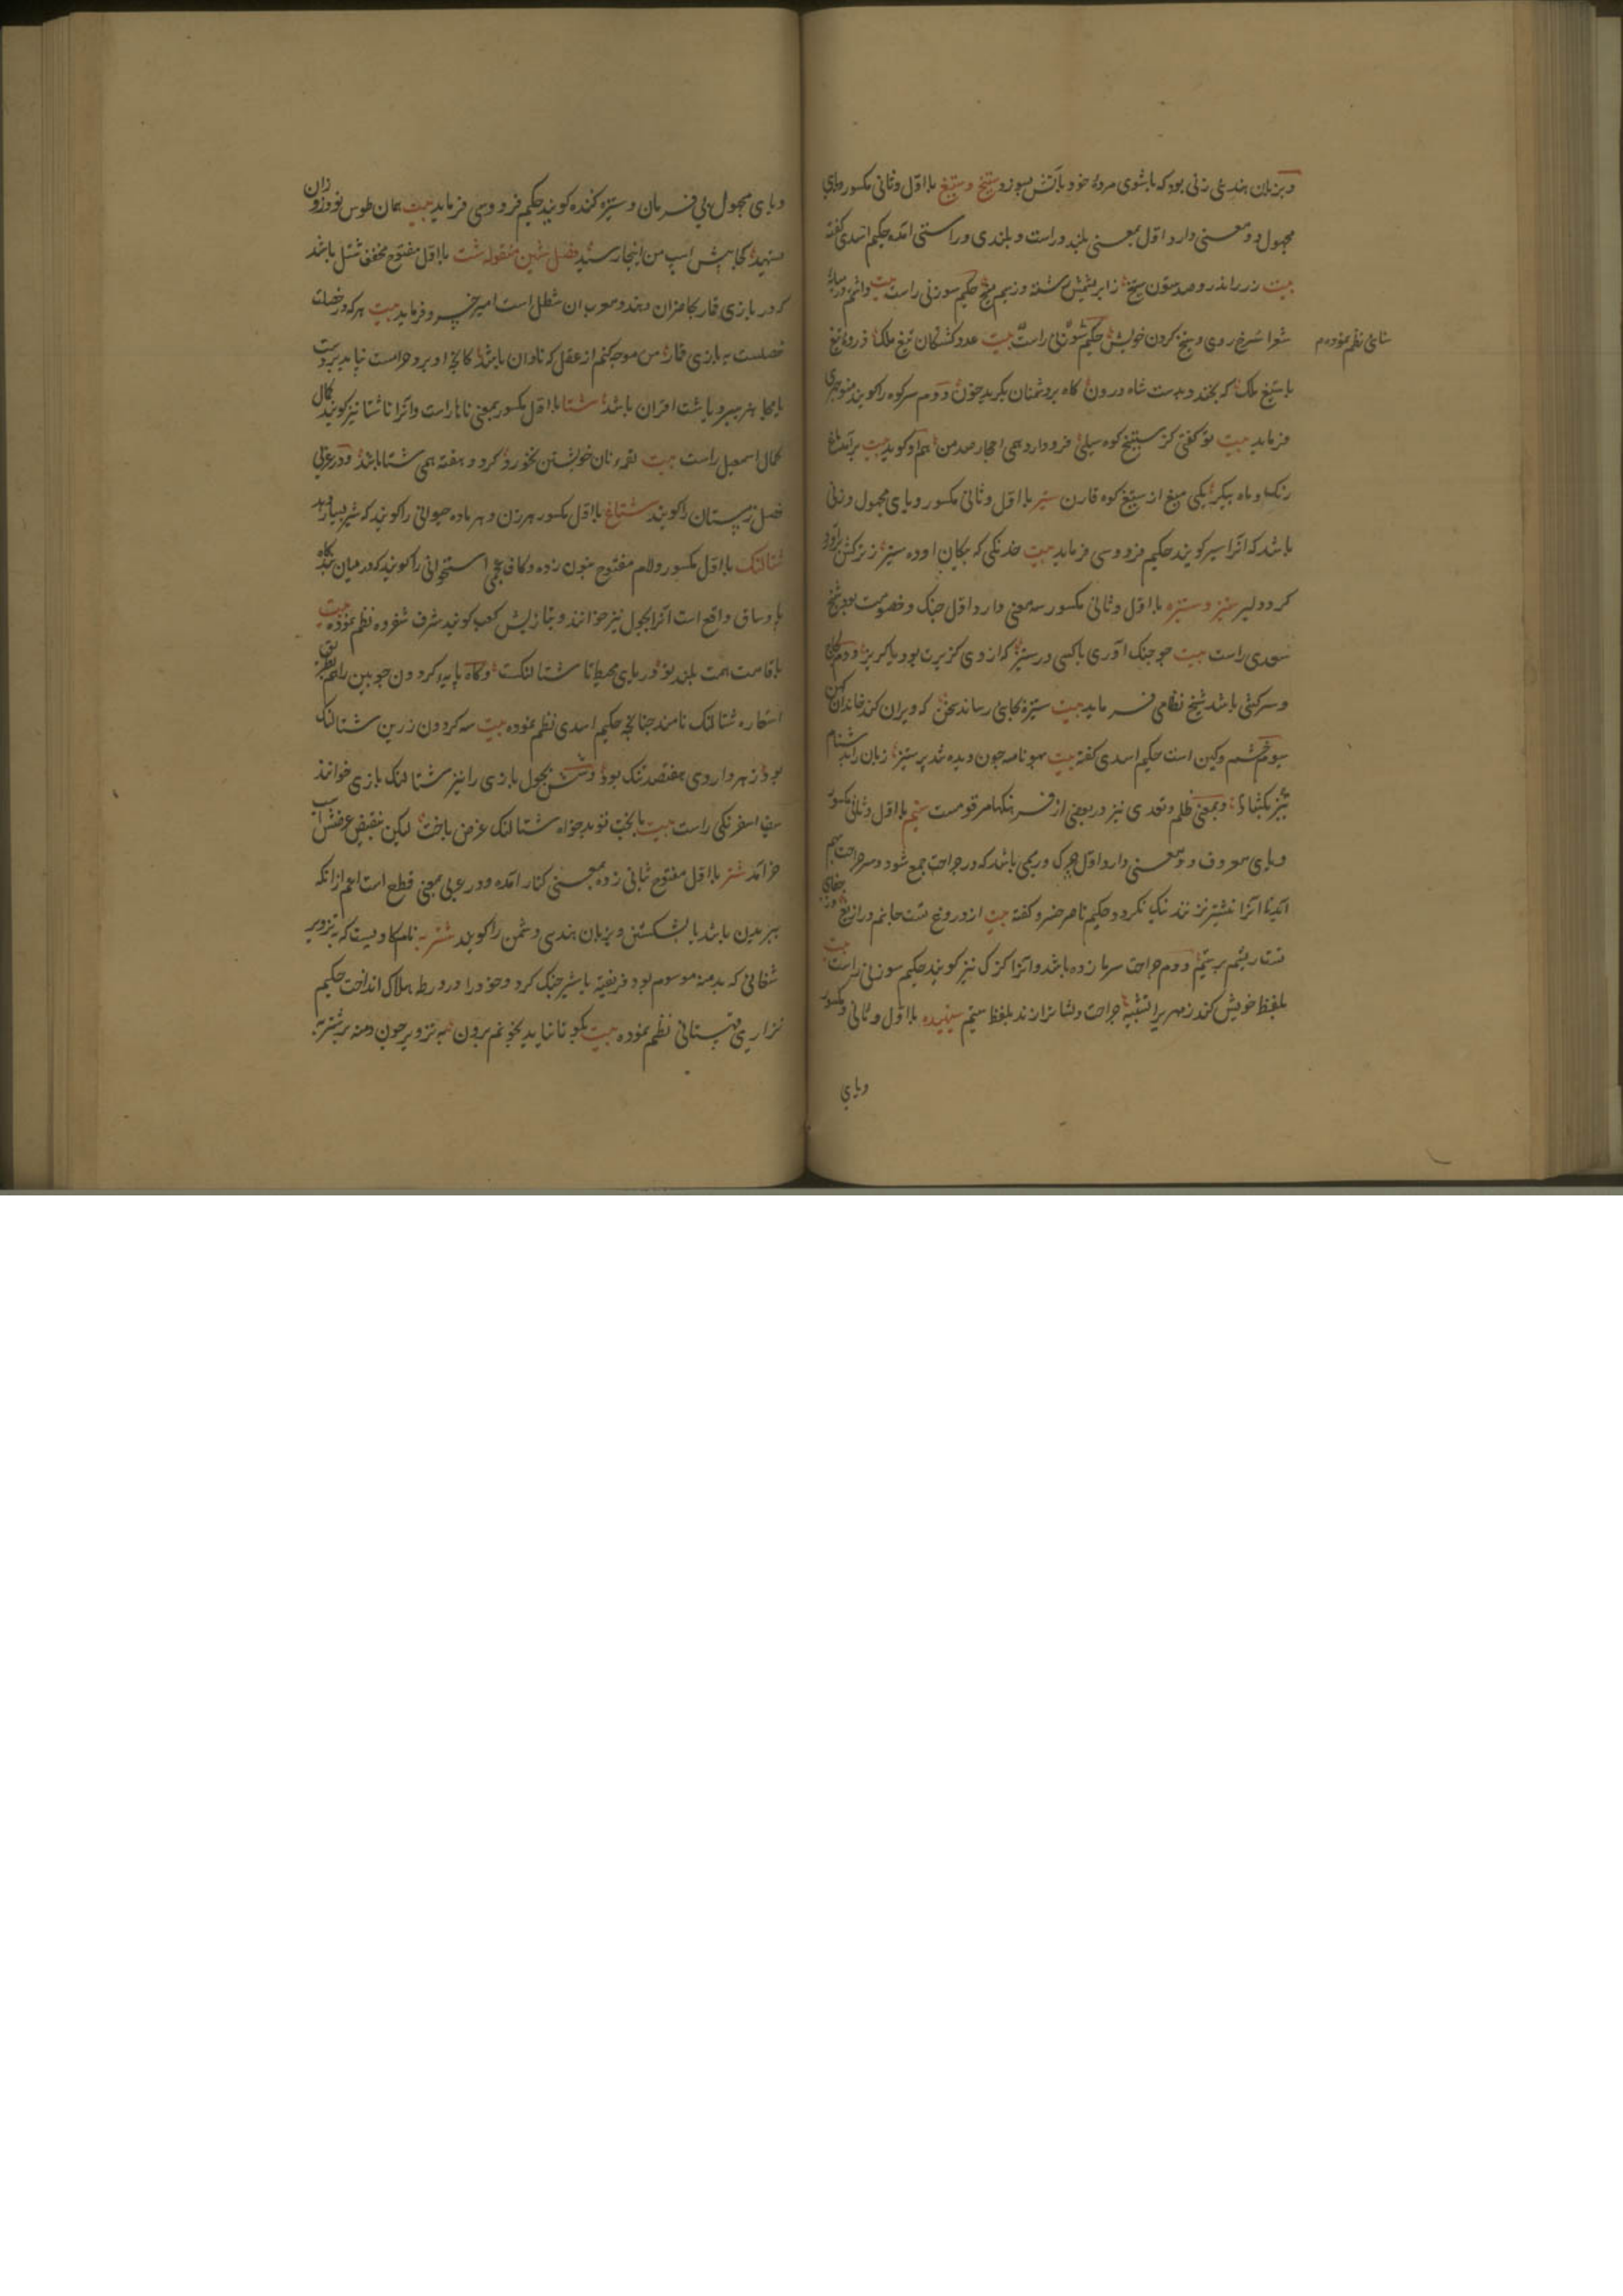 و بزبان هندی ستی زنی بود که با شوی مردهٔ خود بآتش بسوزد ستیخ و ستیغ با اول و ثانی مکسور و یای
مجهول دو معنی دارد اول بمعنی بلند و راست و بلندی و راستی آمده حکیم اسدی گفته
بیت زر راندر و صد ستون ستیخ زابریشمش رشته و زسیم میخ حکیم سوزنی راست بیت
شوا سرخ روی و ستیخ کردن خویش حکیم سوزنی راست بیت عدو کشتکان تیغ ملک ذروهٔ تیغ
سنائی نظم نموده
با ستیغ ملک که بخندد بدست شاه درون کاه بر دشمنان بکرید خون دوم سر کوه را کویند منوچهری
فرماید بیت تو کفتی کز ستیغ کوه سیلی فرود آرد همی احجار صد من هم او کوید بیت
رنک و ماه پیکر یکی میغ از ستیغ کوه قارن ستیر با اول و ثانی مکسور و یای مجهول وزنی
باشد که آنرا سیر کویند حکیم فردوسی فرماید بیت خدنکی که پیکان او ده ستیر ز ترکش برآورد
کرد دلیر ستیز و ستیزه با اول و ثانی مکسور سه معنی دارد اول جنک و خصومت بود شیخ
سعدی راست بیت چو جنک آوری با کسی در ستیز که از وی کزیرت بود یا کریز دوم
و سرکشی باشد شیخ نظامی فرماید بیت ستیزه بجائی رساند سخن که ویران کند خاندان کهن
سوم خشم و کین است حکیم اسدی کفته بیت چو نامه چون دیده شد پر ستیز زبان را بدشنام
تیز بکشاد و بمعنی ظلم و تعدی نیز در بعضی از فرهنکها مرقومست ستیم با اول و ثانی مکسور
و یای معروف دو معنی دارد اول چرک و ریمی باشد که در جراحت جمع شود و سر جراحت بهم
آید تا آنرا نشتر نزنند نیک نکردد حکیم ناصر خسرو کفته بیت از دروغ تست جانم در
تست ریشم پر ستیم دوم جراحت سرما زده باشد و آنرا کزک نیز کویند حکیم سوزنی راست بیت
بلفظ خویش کند زمهریر را تشبیه جراحت دلشانرا زند بلفظ ستیم ستیهیده با اول و ثانی مکسور
و یای
و یای مجهول بی فرمان و ستیزه کننده کویند حکیم فردوسی فرماید بیت همان طوس نوذر
ستیهد کجا پیش اسب من اینجا رسید فصل شین منقوطه شت با اول مفتوح مخفف شتل باشد
که در بازی قمار بحاضران دهند و معرب آن شطل است امیر خسرو فرماید بیت هرکه در خصلت
خصلست به بازی قمار من موجکنم از عقل که نادان باشد کانچه او برد و حرامست نیاید بر دست
یا بجا هنر سپرد یا شت اقران باشد شتا با اول مکسور بمعنی ناهار است و آنرا ناشتا نیز کویند کمال
کمال اسمعیل راست بیت لقمهٔ نان خویشتن نخورد کرد و هفته همی شتا باشد و در عربی
فصل زمستان را کویند شتاغ با اول مکسور هر زن و هر ماده حیوانی را کویند که شیر بسیار دهد
شتالنک با اول مکسور و لام مفتوح بنون زده و کاف عجمی استخوانی را کویند که در میان بندکاه
پا و ساق واقع است آنرا بجول نیز خوانند و بتازیش کعب کویند شرف شفروه نظم نموده بیت
با قامت همت بلند تو دریای محیط تا شتالنک و کاه پایهٔ کردون چوبین را هم بطریق
استعاره شتالنک نامند چنانچه حکیم اسدی نظم نموده بیت سه کردون زرین شتالنک
بود زهر داروی هفتصد تنک بود و شش بجول بازی را نیز شتالنک بازی خوانند
سیف اسفرنکی راست بیت با بخت تو بدخواه شتالنک غرض باخت لیکن نقیض غرضش
خر آمد شتر با اول مفتوح ثانی زده بمعنی کنار آمده و در عربی بمعنی قطع است اعم از آنکه
ببریدن باشد یا بشکستن و بزبان هندی دشمن را کویند شتربه نام کاویست که بتزویر
شغالی که بدمنه موسوم بود فریفته با شیر جنک کرد و خود را در ورطه هلاک انداخت حکیم
نزاری قهستانی نظم نموده بیت بکو تا نیاید بخونم برون به تزویر چون دمنه بر شتربه